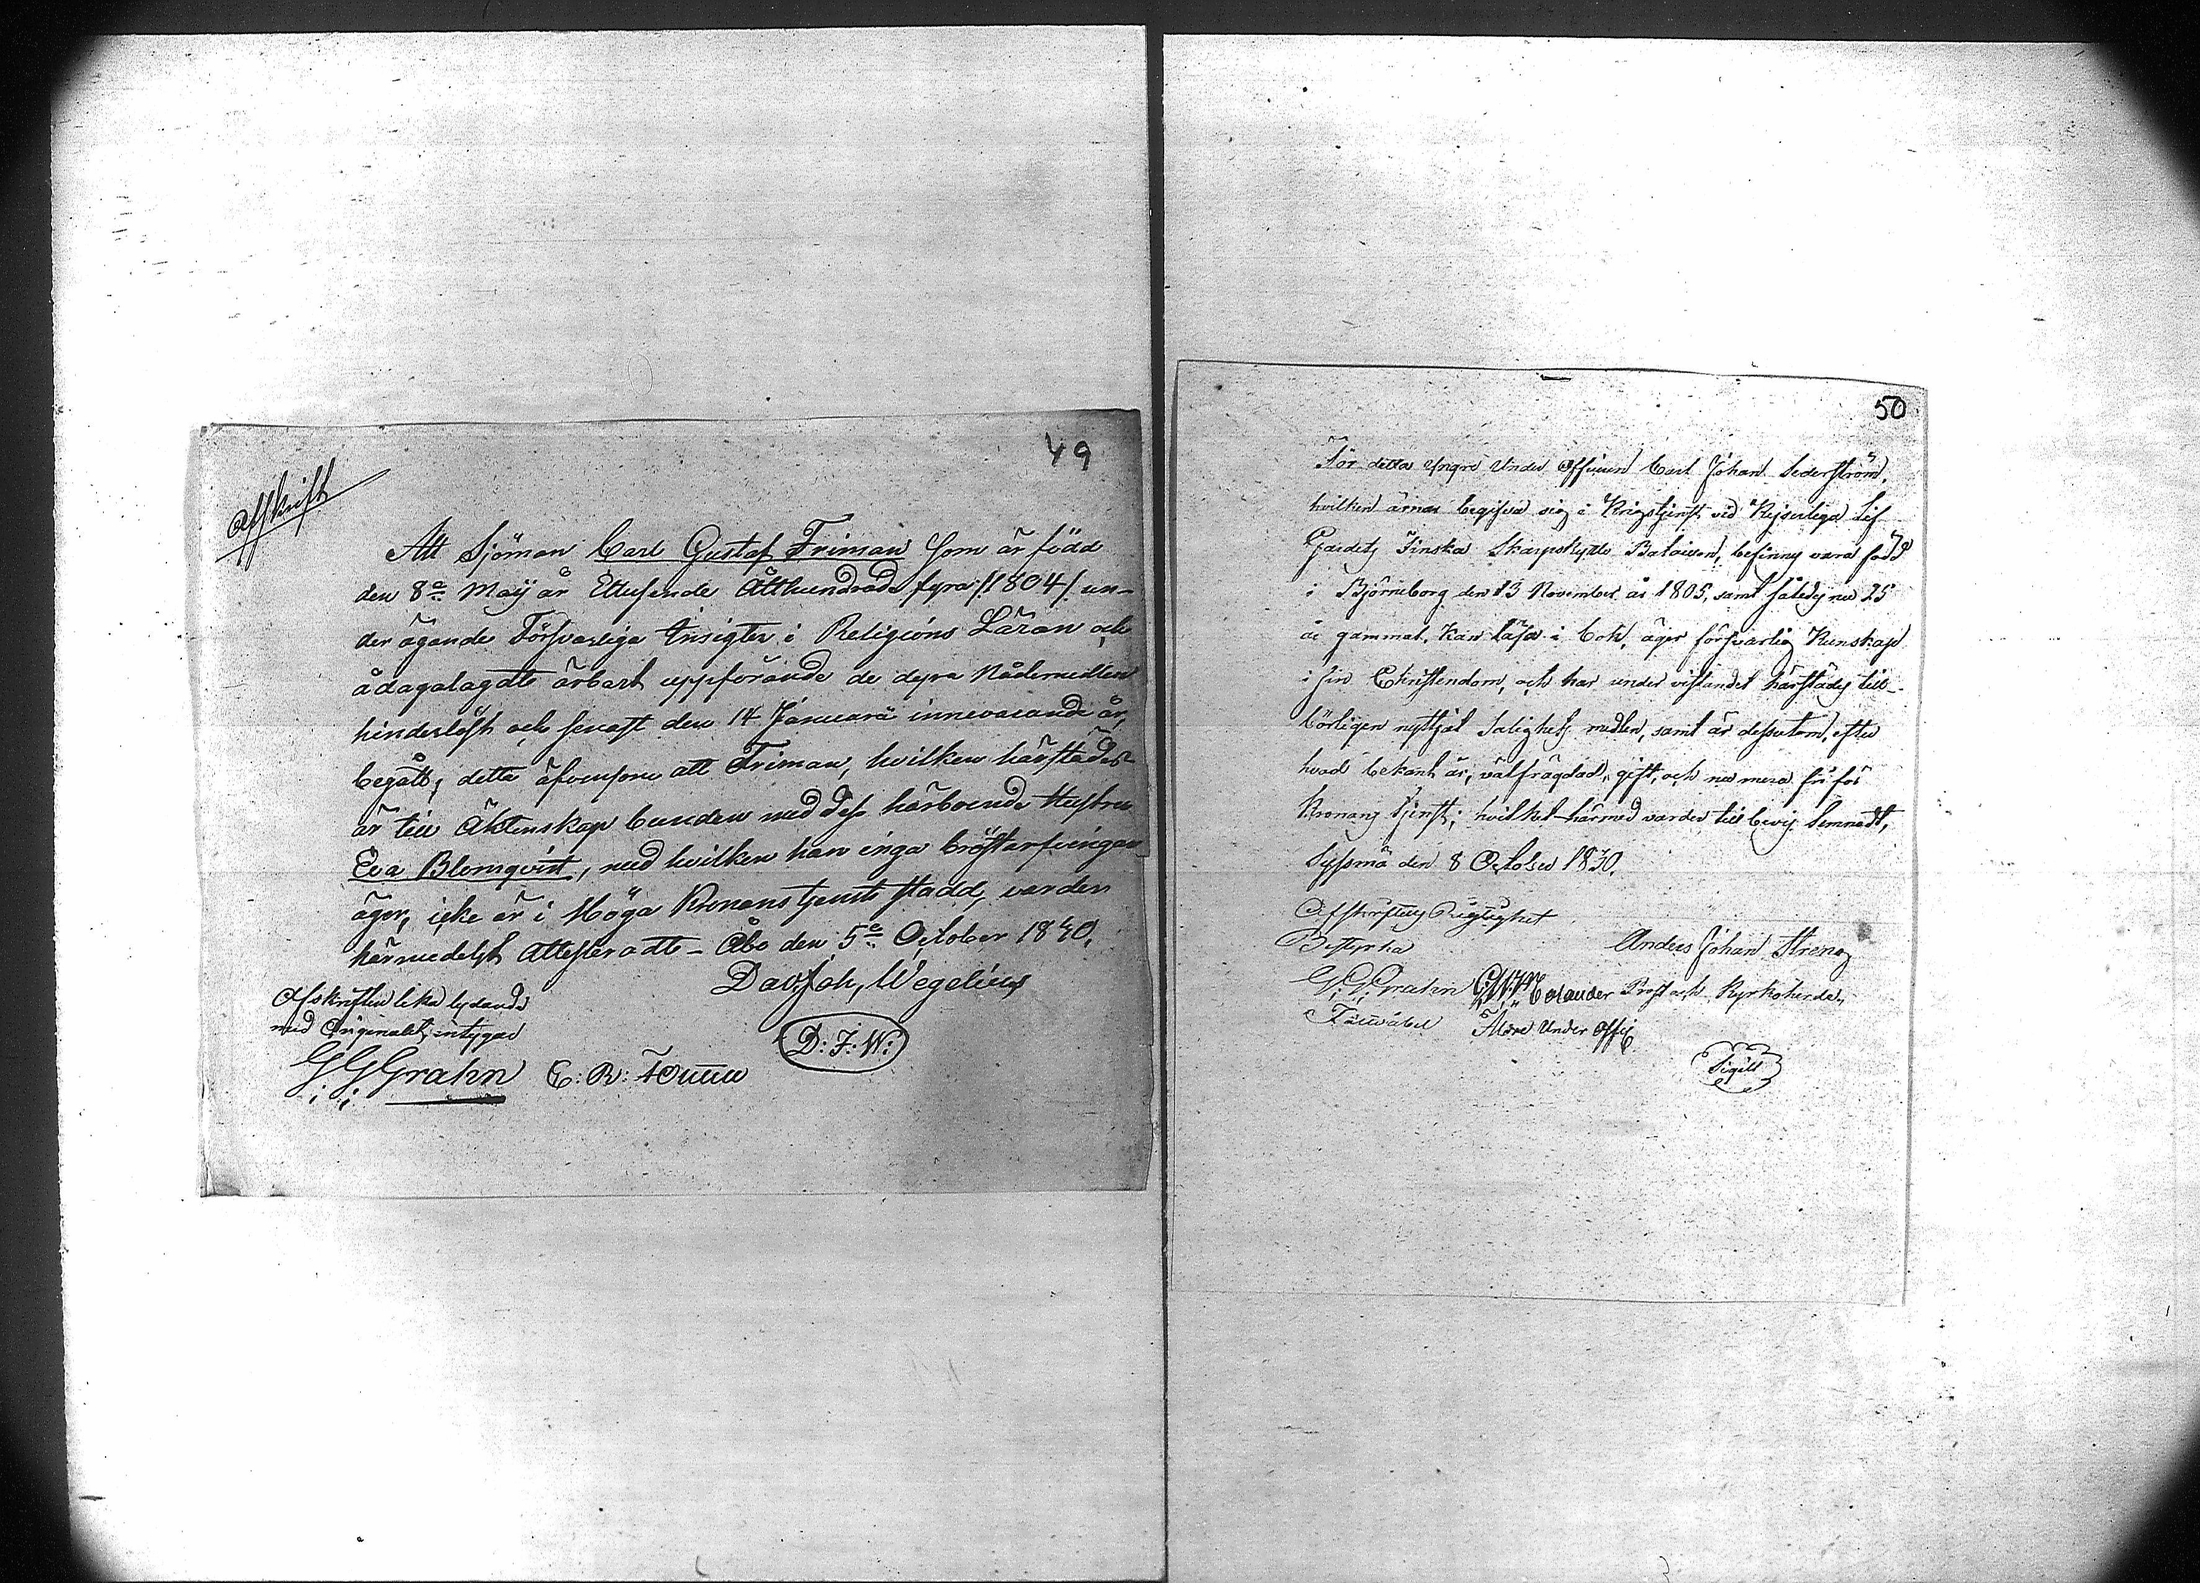 49
Afskrift
Att Sjöman Carl Gustaf Friman som är född
den 8e Maÿ år Ettusende Åttahundrade fyra /:1804:/ un-
der ägande Försvarliga Insigter i Religions Läran och
ådagalagdt ärbart uppförande de dyra Nådemedlen
hinderlöst och senast den 14 Januarii innevarande år,
begått; detta äfvensom att Friman, hvilken härstädes
är till Äktenskap bunden med dess härboende Hustru
Eva Blomqvist, med hvilken han inga bröstarfvingar
äger, icke är i Höga Kronans tjenst stadd, varder
härmedelst Attesteradt - Åbo den 5e October 1830.
Dav. Joh, Wegelius
D: J: W:
Afskriften lika lydande
med Originalet, intygar
G: G: Grahn E: R:
50
För detta Yngre Under Officern Carl Johan Sederström,
hvilken ärnar begifva sig i Krigstjenst vid Kejserliga Lif
Gardets Finska Skarpskytte Bataillon, befinns vara född
i Björneborg den 13 November år 1805, samt således nu 25
år gammal. Kan läsa i bok, äger försvarlig Kunskap
i sin Christendom, och har under vistandet härstädes till-
börligen nyttjat Salighets medlen, samt är dessutom, efter
hvad bekant är, välfrägdad, gift, och nu mera fri för
Kronans tjenst; hvilket härmed varder till bevis lemnadt,
Sysmä den 8 October 1830.
Afskriftens Rigtighet
Bestyrka
Anders Johan Streng
G: G: Grahn Prost och Kyrkoherde.
Fältväbel Äldre Under Offic
Sigill